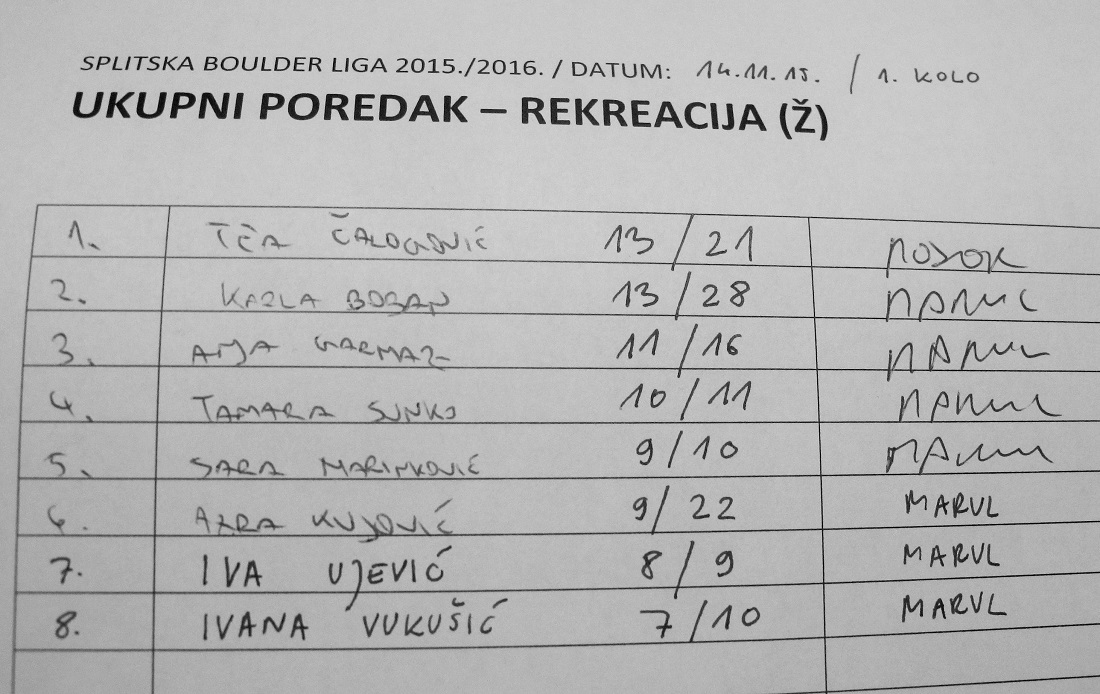 SPLITSKA BOULDER LIGA 2015./2016. / DATUM: 14.11.15. / 1. KOLO
UKUPNI POREDAK – REKREACIJA (Ž)
1. TEA 13/21
2. KARLA BOBAN 13/28 MARUL
3. GARMAZ 11/16 MARUL
4. TAMARA SUNKO 10/11 MARUL
5. SARA MARINKOVIĆ 9/10 MARUL
6. AZRA KUJOVIĆ 9/22 MARUL
7. IVA UJEVIĆ 8/9 MARUL
8. IVANA VUKUŠIĆ 7/10 MARUL